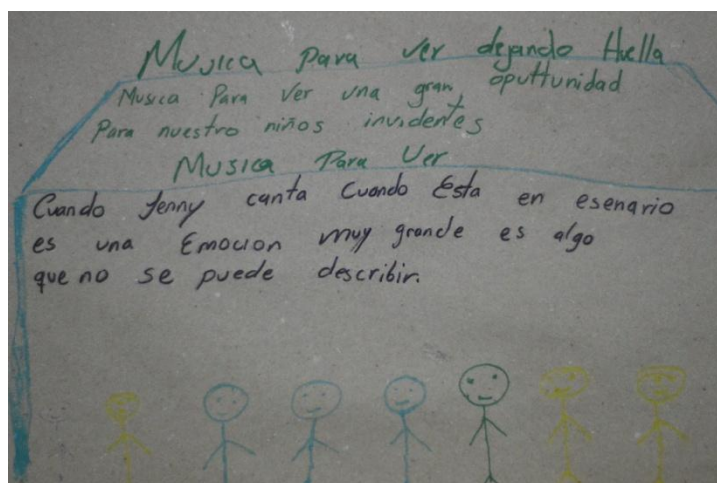 Musica Para ver dejando Huella
Musica Para Ver una gran oputtunidad
Para nuestro niños invidentes
Musica Para Ver
Cuando Jenny canta Cuando Esta en esenario
es una Emocion muy grande es algo
que no se puede describir.